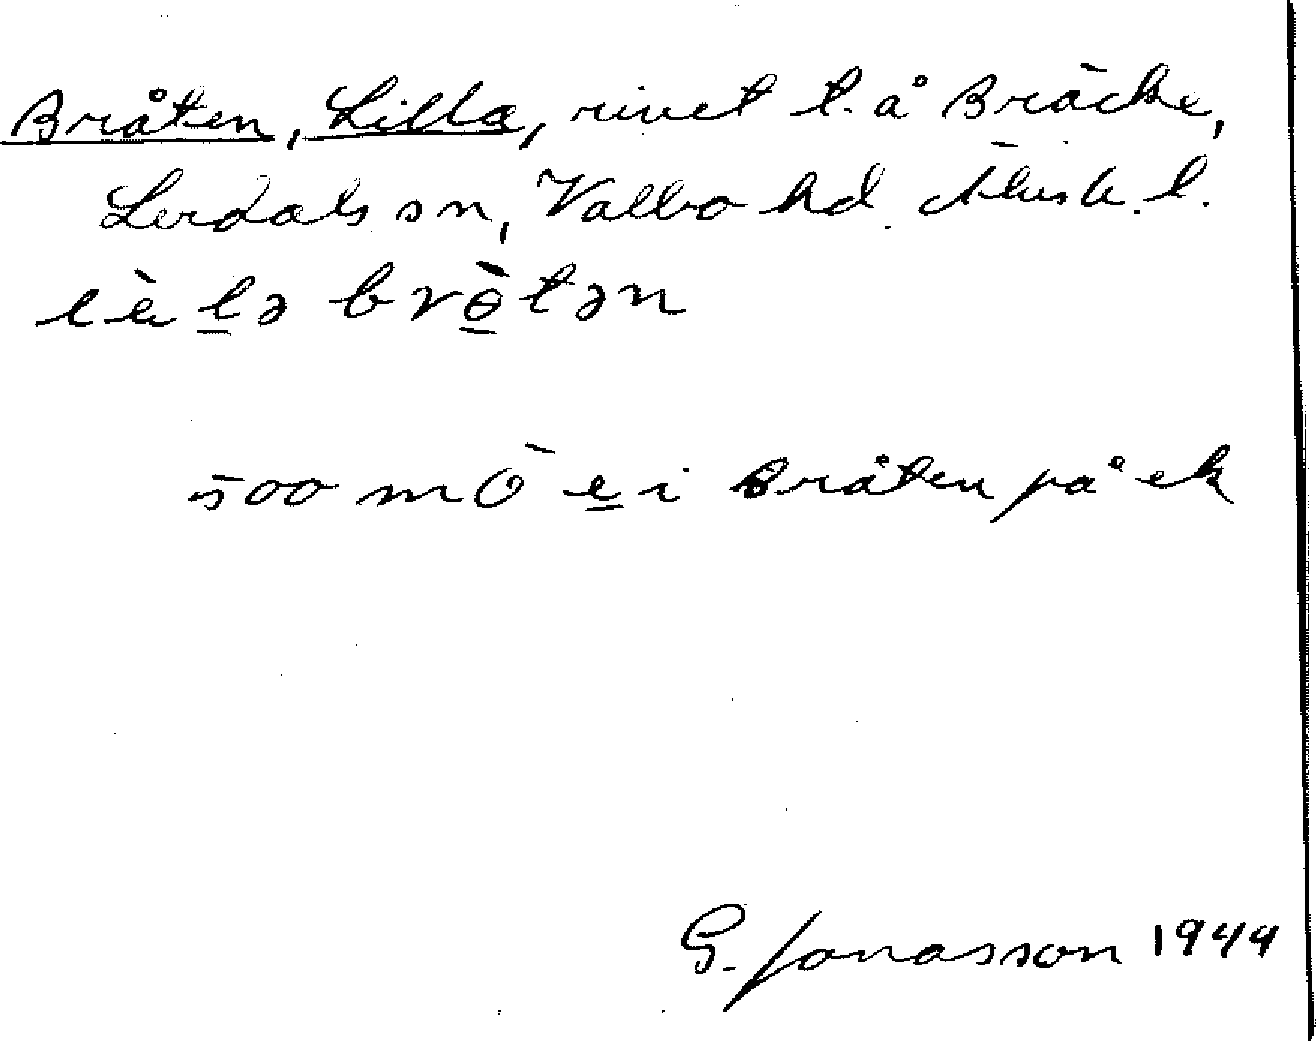 Bråten, Lilla, rivet t. å Bräcke,
Lerdals sn, Valbo hd. Älvsb. l.
lè l̲ə brө̲̀tən
500 m Ö e̲ i Bråten på ek
G. Jonasson 1949